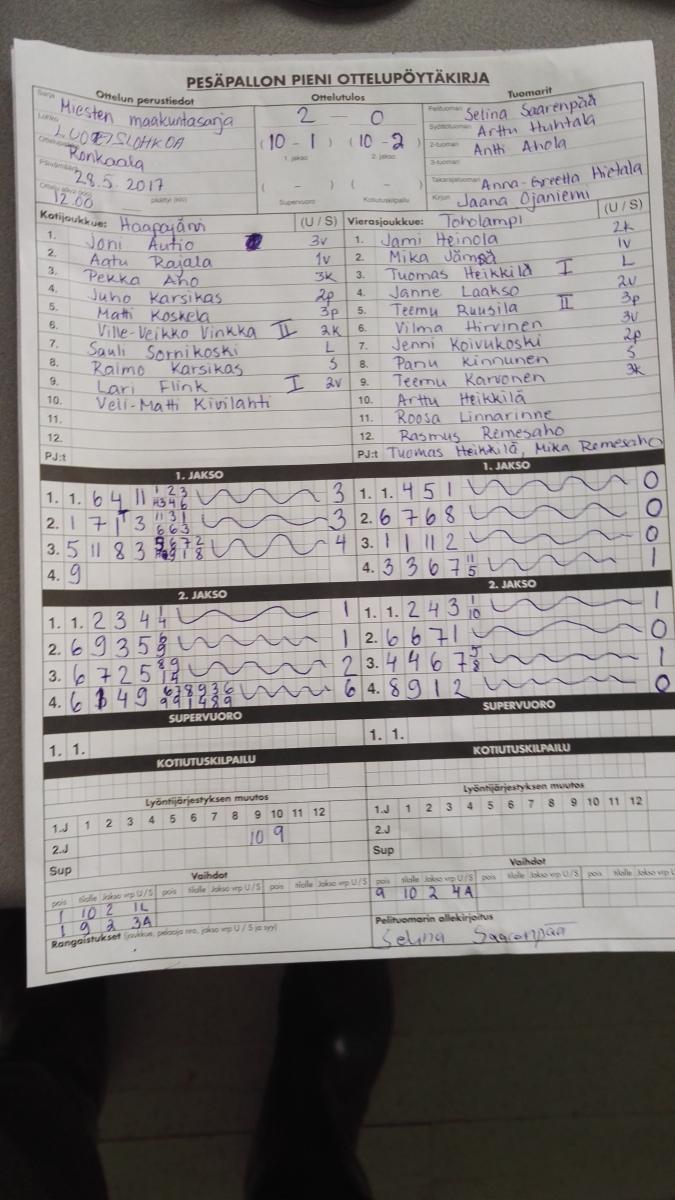 PESÄPALLON PIENI OTTELUPÖYTÄKIRJA
Ottelun perustiedot Ottelutulos Tuomarit
Sarja Miesten maakuntasarja 2 - 0 Pelituomari Selina Saarenpää
Lohko (10 - 1) (10 - 2) Syöttötuomari Arttu Huhtala
Ronkaala 1. jakso 2. jakso 2-tuomari Antti Ahola
Päivämäärä 28.5. 2017 ( - ) ( - ) 3-tuomari
12.00 päättyi (klo) Supervuoro Kotiutuskilpailu Takarajatuomari Anna-Greetta Hietala
Kirjuri Jaana Ojaniemi
Kotijoukkue: Haapajärvi (U / S) Vierasjoukkue: Toholampi (U / S)
1. Joni Autio 3v 1. Jami Heinola 2k
2. Aatu Rajala 1v 2. Mika Jämsä 1v
3. Pekka Aho 3k 3. Tuomas Heikkilä I L
4. Juho Karsikas 2p 4. Janne Laakso 2v
5. Matti Koskela 3p 5. Teemu Ruusila II 3p
6. Ville-Veikko Vinkka II 2k 6. Vilma Hirvinen 3v
7. Sauli Sornikoski L 7. Jenni Koivukoski 2p
8. Raimo Karsikas S 8. Panu Kinnunen S
9. Lari Flink I 2v 9. Teemu Karvonen 3k
10. Veli-Matti Kivilahti 10. Arttu Heikkilä
11. 11. Roosa Linnarinne
12. 12. Rasmus Remesaho
PJ:t PJ:t Tuomas Heikkilä, Mika Remesaho
1. JAKSO 1. JAKSO
1. 1. 6 4 11 3 1. 1. 4 5 1 0
2. 1 7 1 3 3 2. 6 7 6 8 0
3. 5 11 8 3 4 3. 1 1 11 2 0
4. 9 4. 3 3 6 7 11 5 1
2. JAKSO 2. JAKSO
1. 1. 2 3 4 1 1. 1. 2 4 3 1 10 1
2. 6 9 3 5 1 2. 6 6 7 1 0
3. 6 7 2 5 8 9 2 3. 4 4 6 7 5 8 1
4. 6 4 9 6 7 8 9 3 6 9 9 1 4 8 9 6 4. 8 9 1 2 0
SUPERVUORO SUPERVUORO
1. 1. 1. 1.
KOTIUTUSKILPAILU KOTIUTUSKILPAILU
Lyöntijärjestyksen muutos Lyöntijärjestyksen muutos
1.J 1 2 3 4 5 6 7 8 9 10 11 12 1.J 1 2 3 4 5 6 7 8 9 10 11 12
2.J 10 9 2.J
Sup Sup
Vaihdot Vaihdot
pois tilalle Jakso vrp U / S pois tilalle Jakso vrp U / S pois tilalle Jakso vrp U / S pois tilalle Jakso vrp U / S pois tilalle Jakso vrp U / S pois tilalle Jakso vrp U
1 10 2 1L 9 10 2 4A
1 9 2 3A
Rangaistukset (joukkue, pelaaja nro, jakso vrp U / S ja syy) Pelituomarin allekirjoitus
Selina Saarenpää